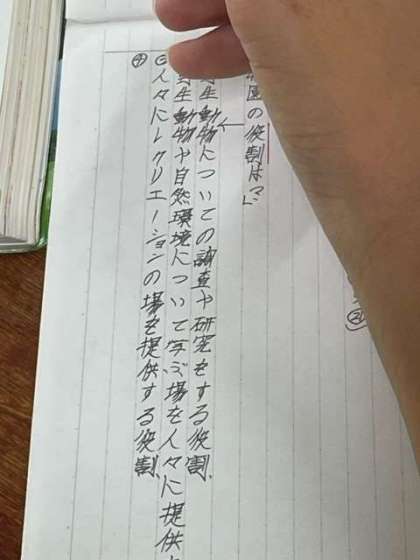 園の役割は
生動物についての調査や研究をする役割
生動物や自然環境について学ぶ場を人々に提供
④人々にレクリエーションの場を提供する役割
20